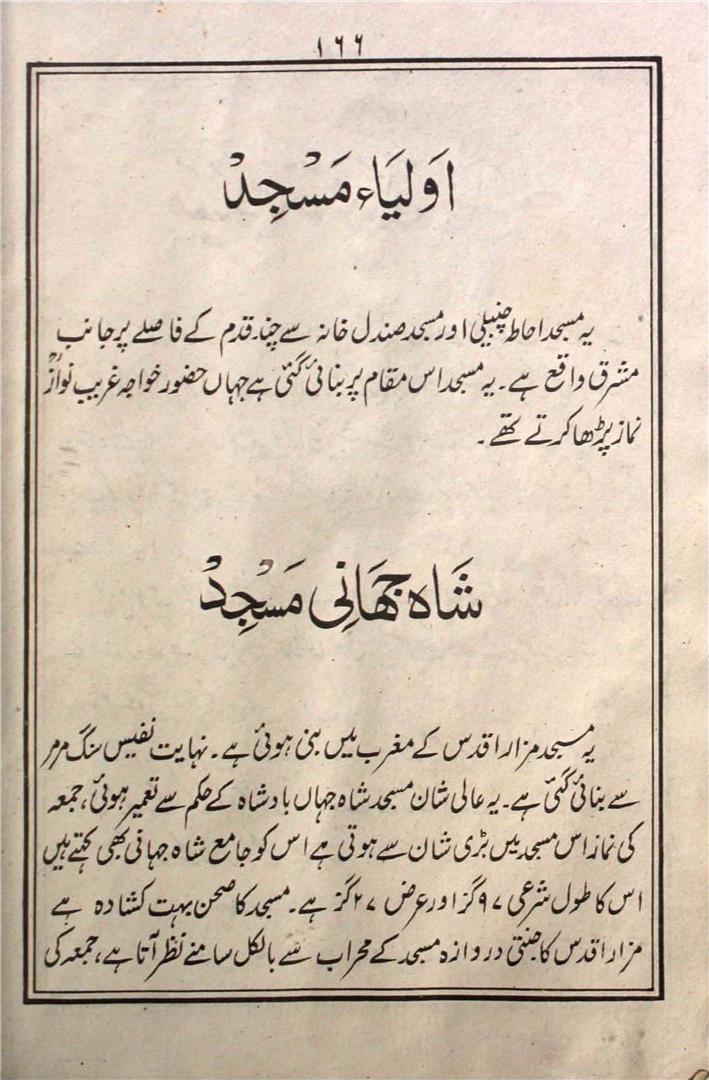 ۱۶۶
اَولیَاء مَسْجِدْ
یہ مسجد احاطہ چنبیلی اور مسجد صندل خانہ سے چند قدم کے فاصلے پر جانب
مشرق واقع ہے۔ یہ مسجد اس مقام پر بنائی گئی ہے جہاں حضور خواجہ غریب نوازؒ
نماز پڑھا کرتے تھے۔
شَاہ جَھَانِی مَسْجِدْ
یہ مسجد مزار اقدس کے مغرب میں بنی ہوئی ہے۔ نہایت نفیس سنگ مرمر
سے بنائی گئی ہے۔ یہ عالی شان مسجد شاہ جہاں بادشاہ کے حکم سے تعمیر ہوئی، جمعہ
کی نماز اس مسجد میں بڑی شان سے ہوتی ہے اس کو جامع شاہ جہانی بھی کہتے ہیں
اس کا طول شرعی ۹۷ گز اور عرض ۲۷ گز ہے۔ مسجد کا صحن بہت کشادہ ہے
مزار اقدس کا جنتی دروازہ مسجد کے محراب سے بالکل سامنے نظر آتا ہے، جمعہ کی